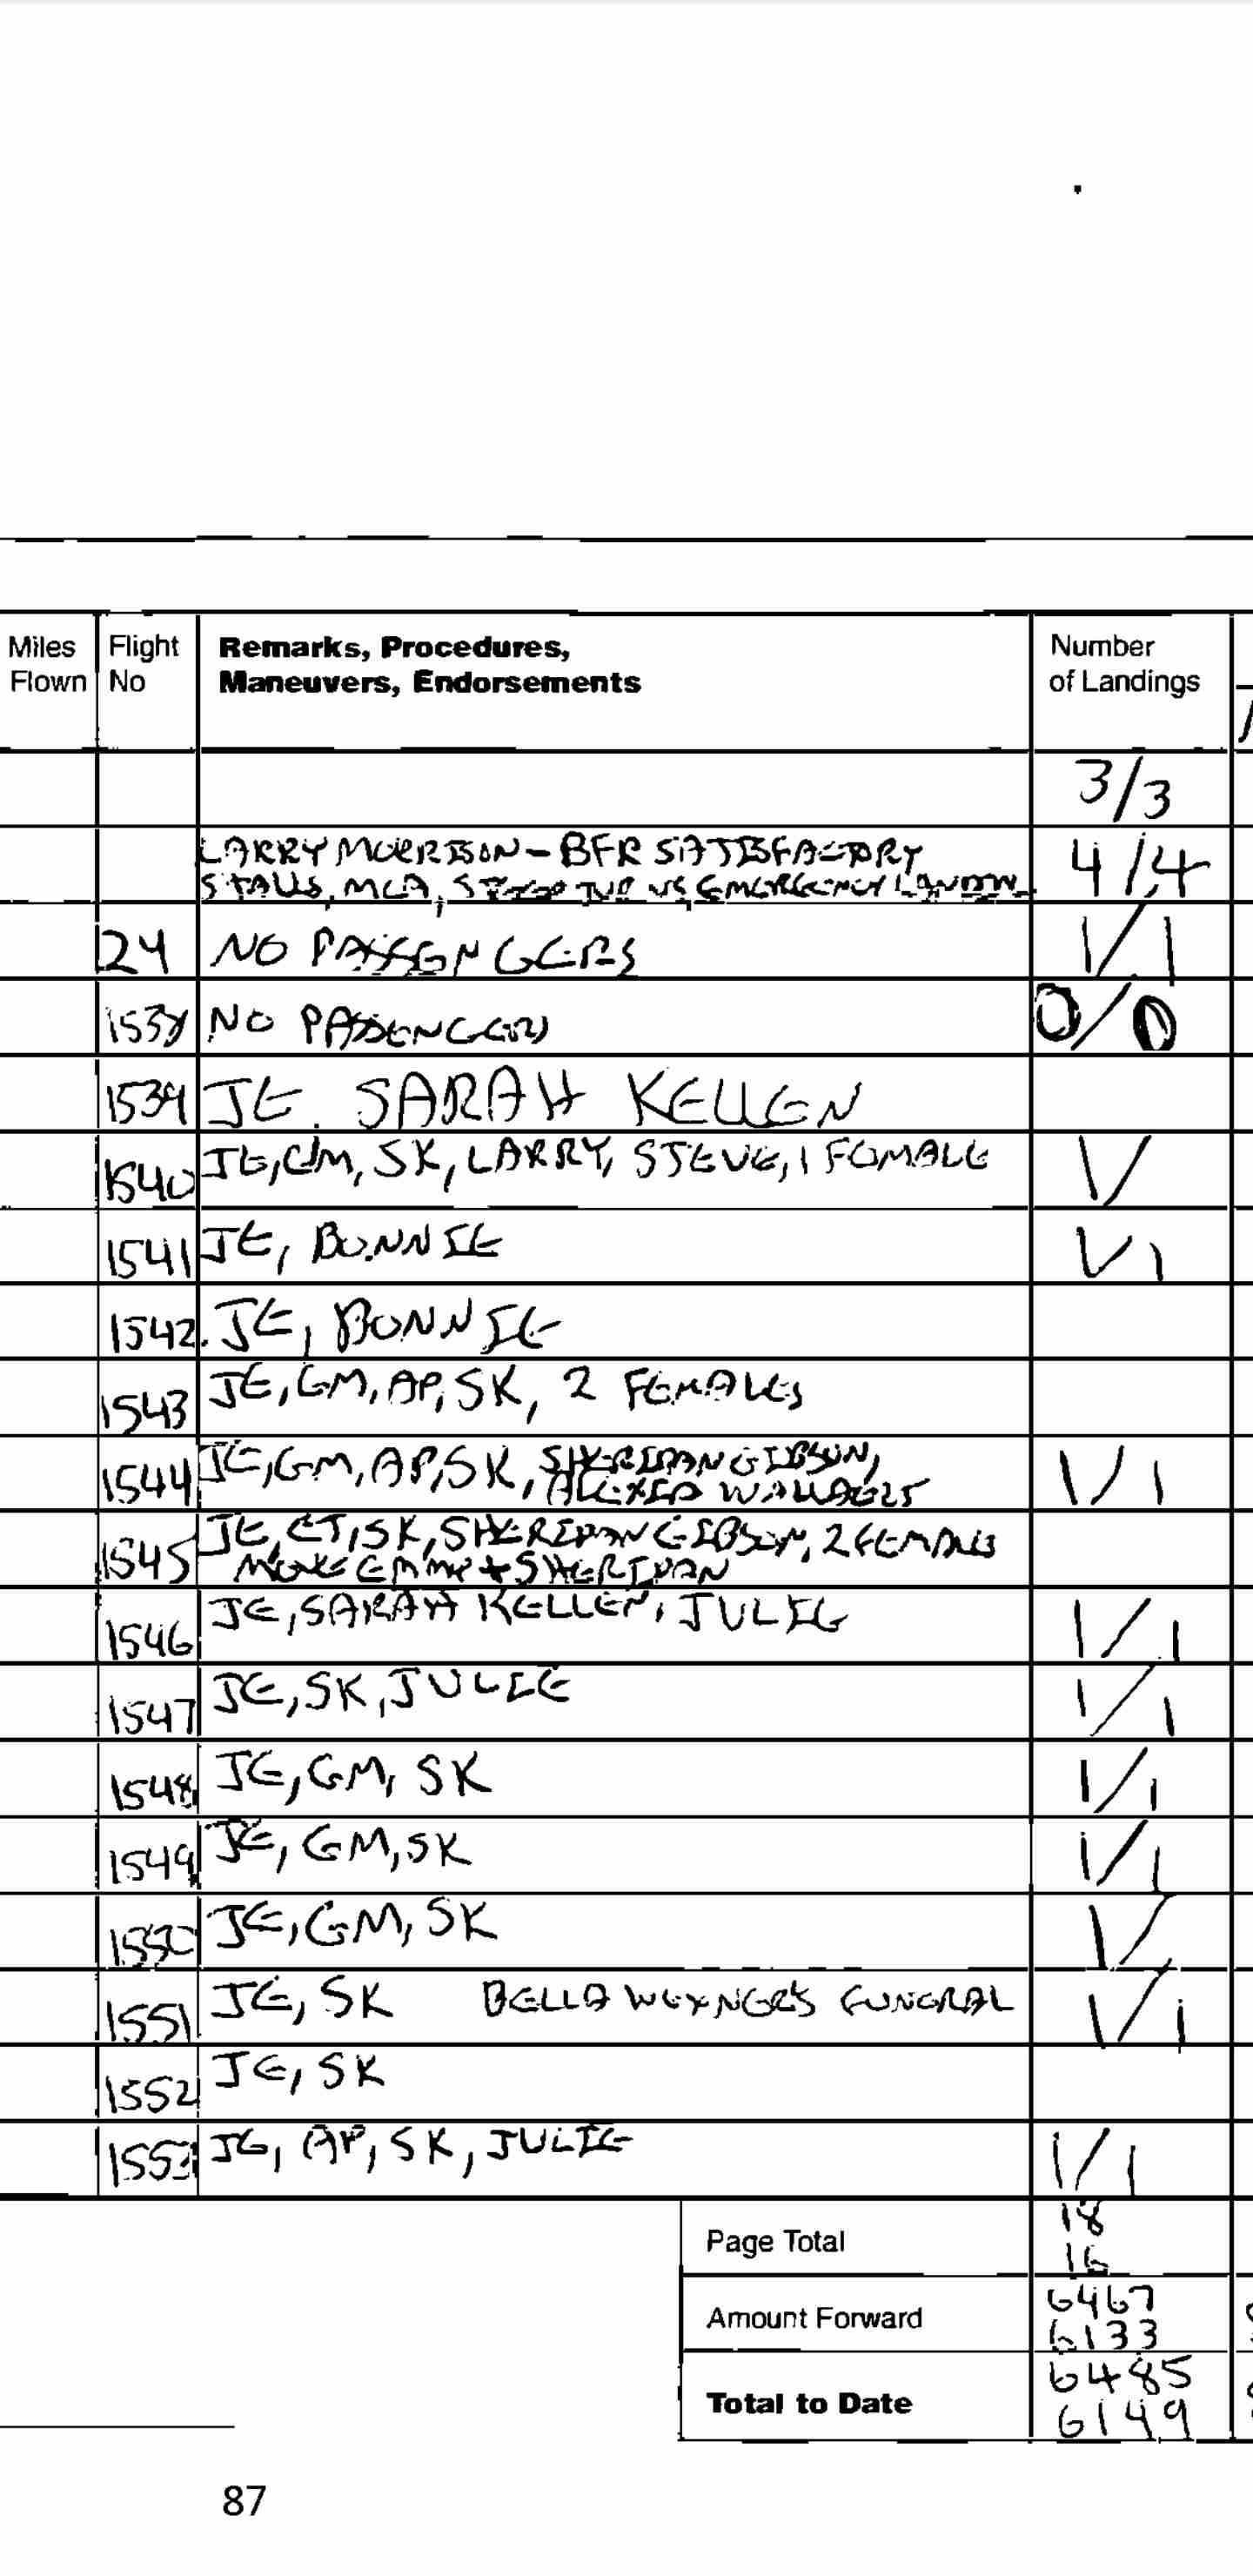 Miles Flown
Flight No
Remarks, Procedures, Maneuvers, Endorsements
Number of Landings
3/3
LARRY MORRISON - BFR SATISFACTORY 4/4
STALLS, MCA, EMERGENCY LANDIN
24 NO PASSENGERS 1/1
1538 NO PASSENGERS 0/0
1539 JE. SARAH KELLEN
1540 JE, GM, SK, LARRY, STEVE, 1 FEMALE 1/
1541 JE, BONNIE 1/1
1542. JE, BONNIE
1543 JE, GM, AP, SK, 2 FEMALES
1544 JE, GM, AP, SK, SHERIDAN GIBSON, 1/1
ALEXIA
1545 JE, ET, SK, SHERIDAN GIBSON, 2 FEMALES
+ SHERIDAN
1546 JE, SARAH KELLEN, JULIE 1/1
1547 JE, SK, JULIE 1/1
1548 JE, GM, SK 1/1
1549 JE, GM, SK 1/1
1550 JE, GM, SK 1/
1551 JE, SK BELLA WEXNER'S FUNERAL 1/1
1552 JE, SK
1553 JE, AP, SK, JULIE 1/1
Page Total 18
16
Amount Forward 6467
6133
Total to Date 6485
6149
87